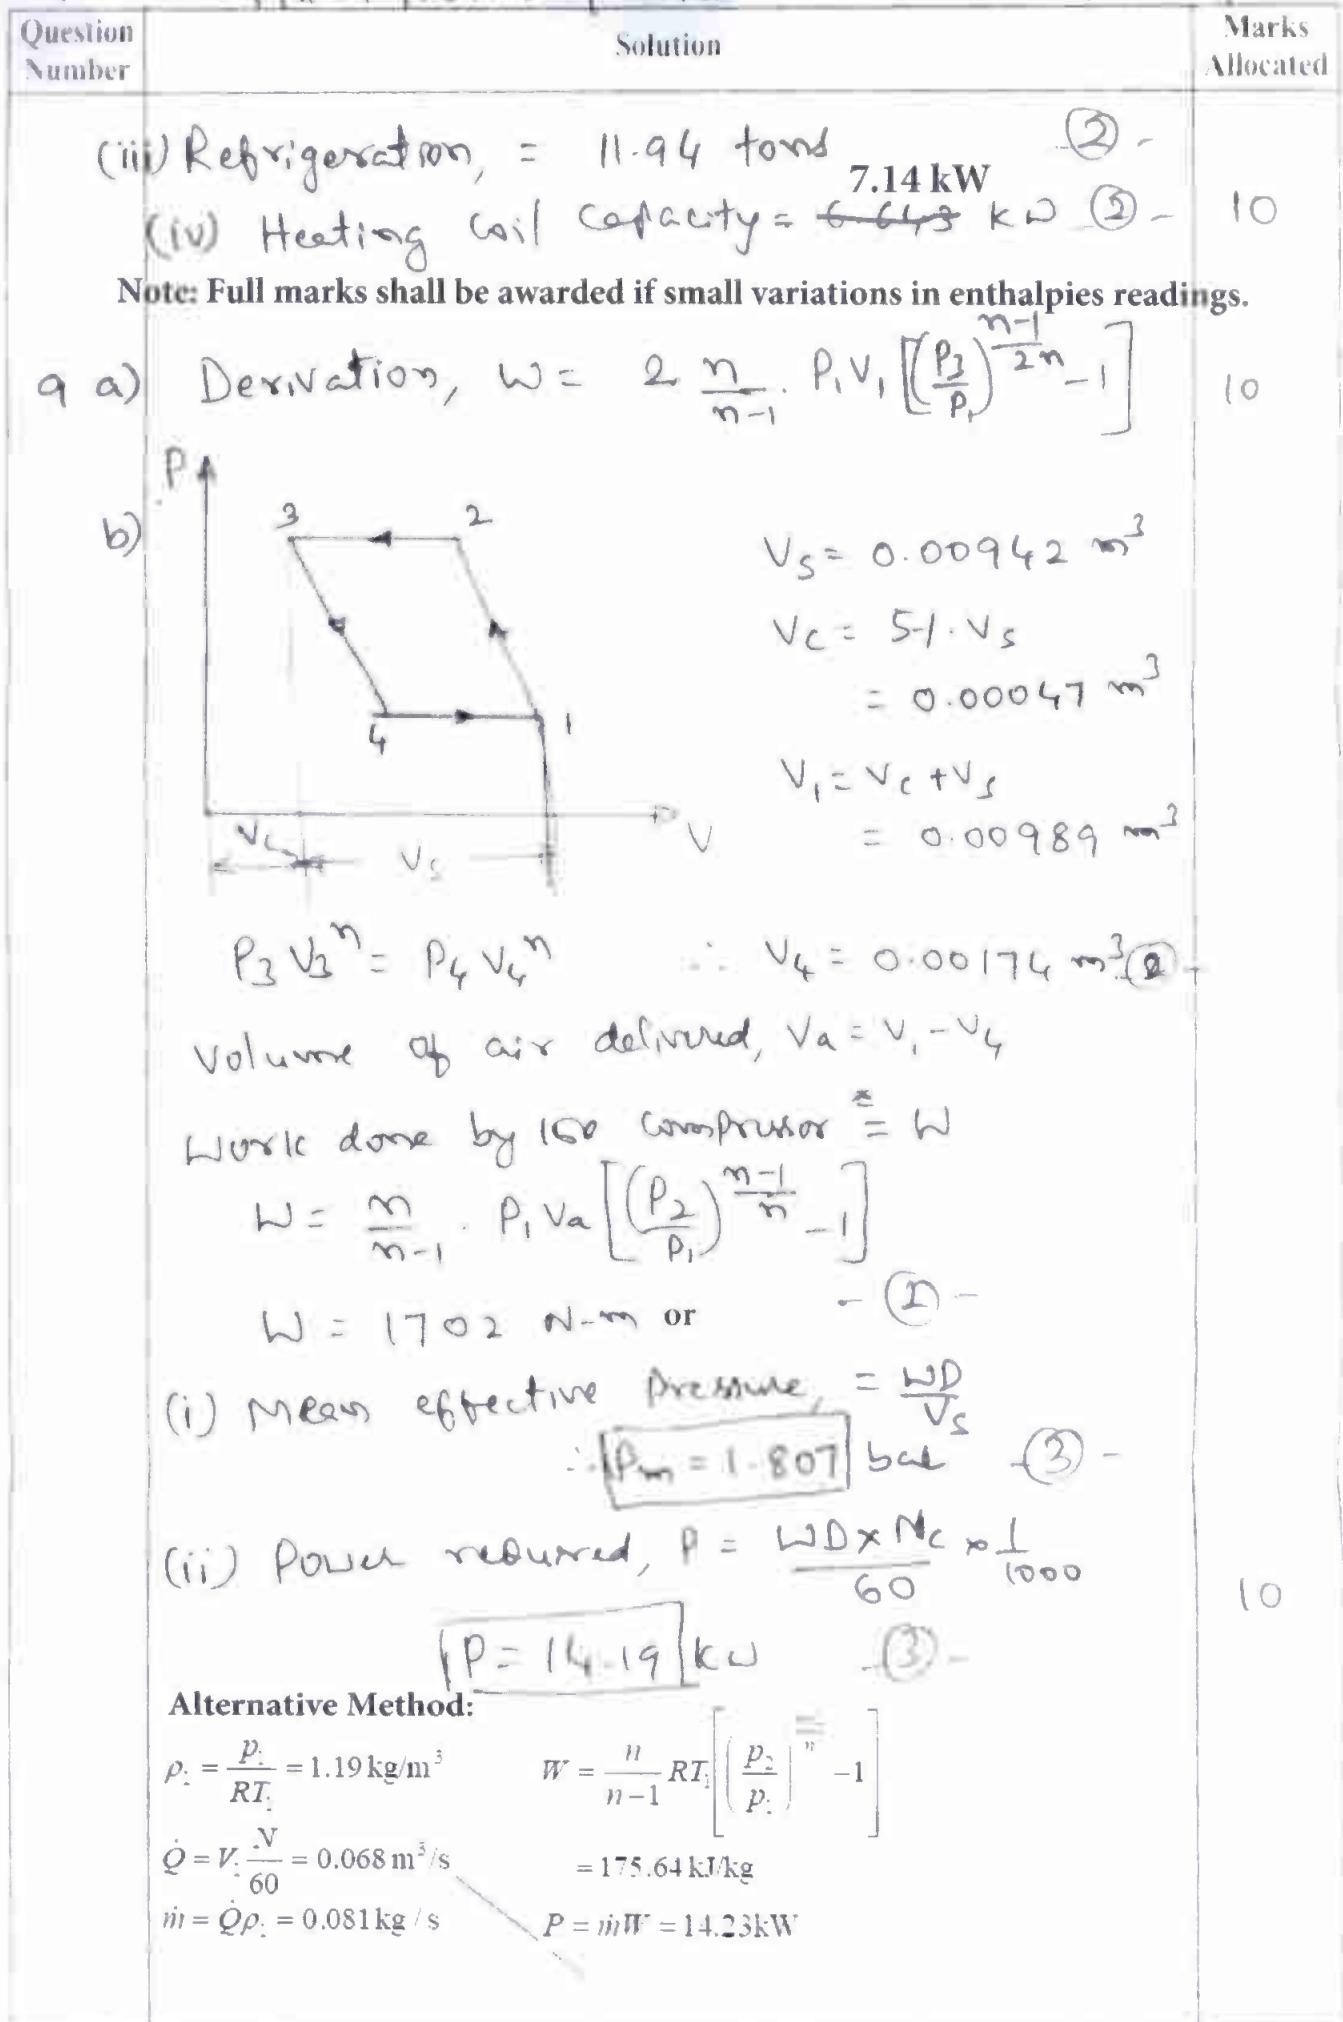 Question Number
Solution
Marks Allocated
(iii) Refrigeration, = 11.94 tons ② -
7.14 kW
(iv) Heating coil capacity = 6.643 kW ② - 10
Note: Full marks shall be awarded if small variations in enthalpies readings.
9 a) Derivation, W = 2 n/(n-1) . P₁V₁ [(P₃/P₁)^((n-1)/2n) - 1] 10
b)
P
3 2
4 1
Vc Vs V
Vs = 0.00942 m³
Vc = 5% . Vs
= 0.00047 m³
V₁ = Vc + Vs
= 0.00989 m³
P₃V₃ⁿ = P₄V₄ⁿ ∴ V₄ = 0.00174 m³ ② -
Volume of air delivered, Va = V₁ - V₄
Work done by compressor = W
W = n/(n-1) . P₁Va [(P₂/P₁)^((n-1)/n) - 1]
W = 1702 N-m or - ② -
(i) Mean effective pressure, = WD/Vs
∴ Pm = 1.807 bar ③ -
(ii) Power required, P = (WD x Nc)/60 x 1/1000
10
P = 14.19 kW ③ -
Alternative Method:
ρ = p/RT = 1.19 kg/m³ W = n/(n-1) RT₁ [(p₂/p) - 1]
Q̇ = V N/60 = 0.068 m³/s = 175.64 kJ/kg
ṁ = Q̇ρ = 0.081 kg/s P = ṁW = 14.23kW